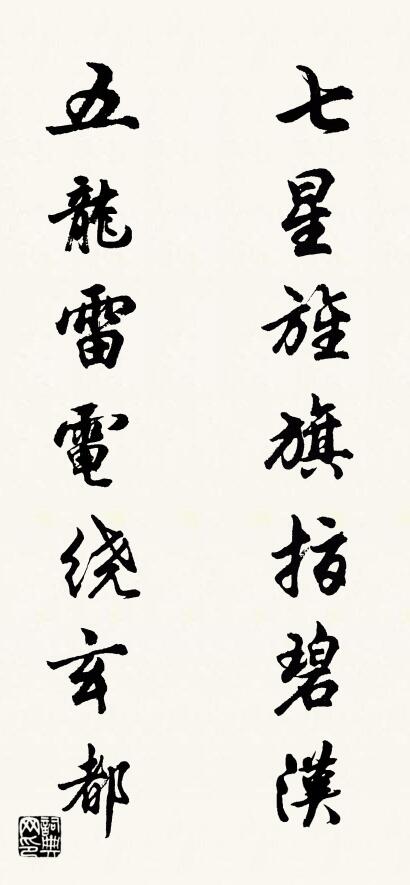 七星旌旗指碧漢
五龍雷電绕玄都
詞典网印